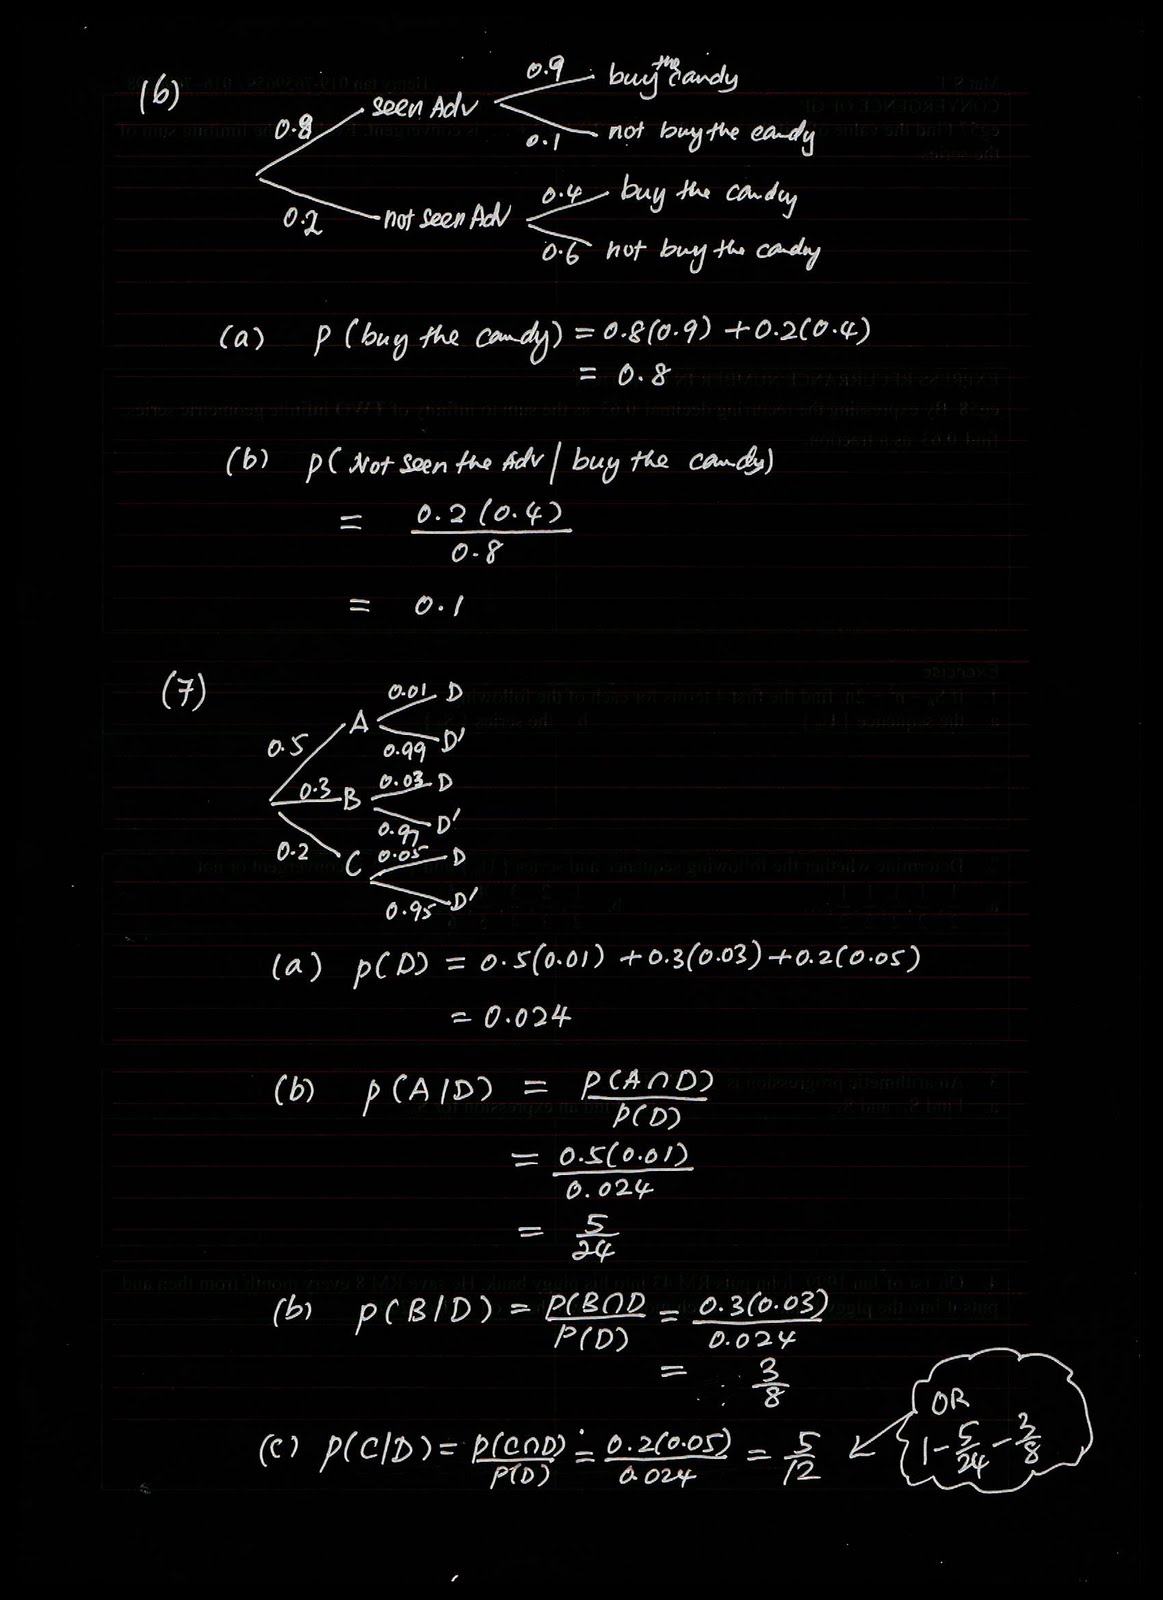 (6)
0.8 seen Adv 0.9 buy the candy
0.1 not buy the candy
0.2 not seen Adv 0.4 buy the candy
0.6 not buy the candy
(a) P(buy the candy) = 0.8(0.9) + 0.2(0.4)
= 0.8
(b) P(Not seen the Adv / buy the candy)
= 0.2(0.4) / 0.8
= 0.1
(7)
0.5 A 0.01 D
0.99 D'
0.3 B 0.03 D
0.97 D'
0.2 C 0.05 D
0.95 D'
(a) P(D) = 0.5(0.01) + 0.3(0.03) + 0.2(0.05)
= 0.024
(b) P(A/D) = P(A∩D) / P(D)
= 0.5(0.01) / 0.024
= 5/24
(b) P(B/D) = P(B∩D / P(D) = 0.3(0.03) / 0.024
= 3/8
(c) P(C/D) = P(C∩D) / P(D) = 0.2(0.05) / 0.024 = 5/12
OR
1 - 5/24 - 3/8